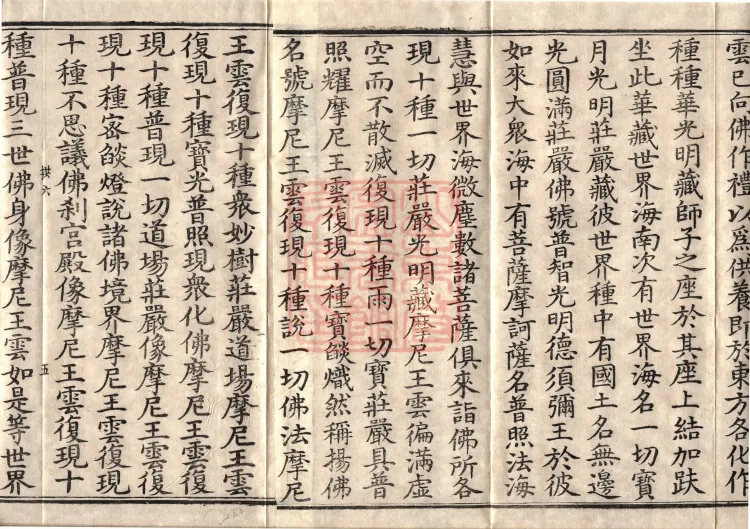 雲已向佛作禮以爲供養即於東方各化作
種種華光明藏師子之座於其座上結加趺
坐此華藏世界海南次有世界海名一切寶
月光明莊嚴藏彼世界種中有國土名無邊
光圓滿莊嚴佛號普智光明德須彌王於彼
如來大衆海中有菩薩摩訶薩名普照法海
慧與世界海微塵數諸菩薩俱來詣佛所各
現十種一切莊嚴光明藏摩尼王雲徧滿虛
空而不散滅復現十種雨一切寶莊嚴具普
照耀摩尼王雲復現十種寶燄熾然稱揚佛
名號摩尼王雲復現十種說一切佛法摩尼
王雲復現十種衆妙樹莊嚴道場摩尼王雲
復現十種寶光普照現衆化佛摩尼王雲復
現十種普現一切道場莊嚴像摩尼王雲復
現十種密燄燈說諸佛境界摩尼王雲復現
十種不思議佛刹宮殿像摩尼王雲復現十
拱六 五
種普現三世佛身像摩尼王雲如是等世界